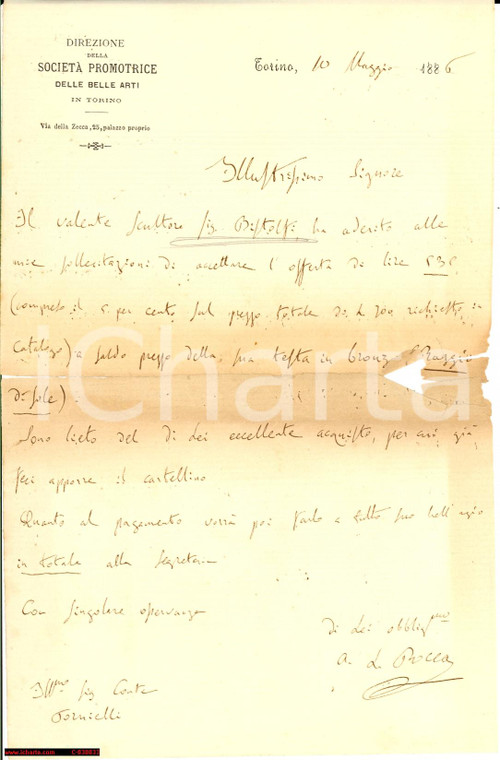 DIREZIONE
DELLA
SOCIETÀ PROMOTRICE
DELLE BELLE ARTI
IN TORINO
Via della Zecca, 25, palazzo proprio
Torino, 10 Maggio 1886
Illustrissimo Signore
Il valente scultore Sig. Bistolfi ha aderito alle
mie sollecitazioni di accettare l'offerta di lire 535
(compreso il 5 per cento sul prezzo totale di L 700 richiesto in
Catalogo) a saldo prezzo della sua testa in bronzo (Raggio
di Sole).
Sono lieto del di Lei eccellente acquisto, per cui già
feci apporre il cartellino
Quanto al pagamento vorrà poi farlo a tutto suo bell'agio
in totale alla Segreteria
Con singolare osservanza
di Lei obbligmo
A. L. Rocca
Illmo Sig. Conte
Tornielli
iCharta
www.icharta.com